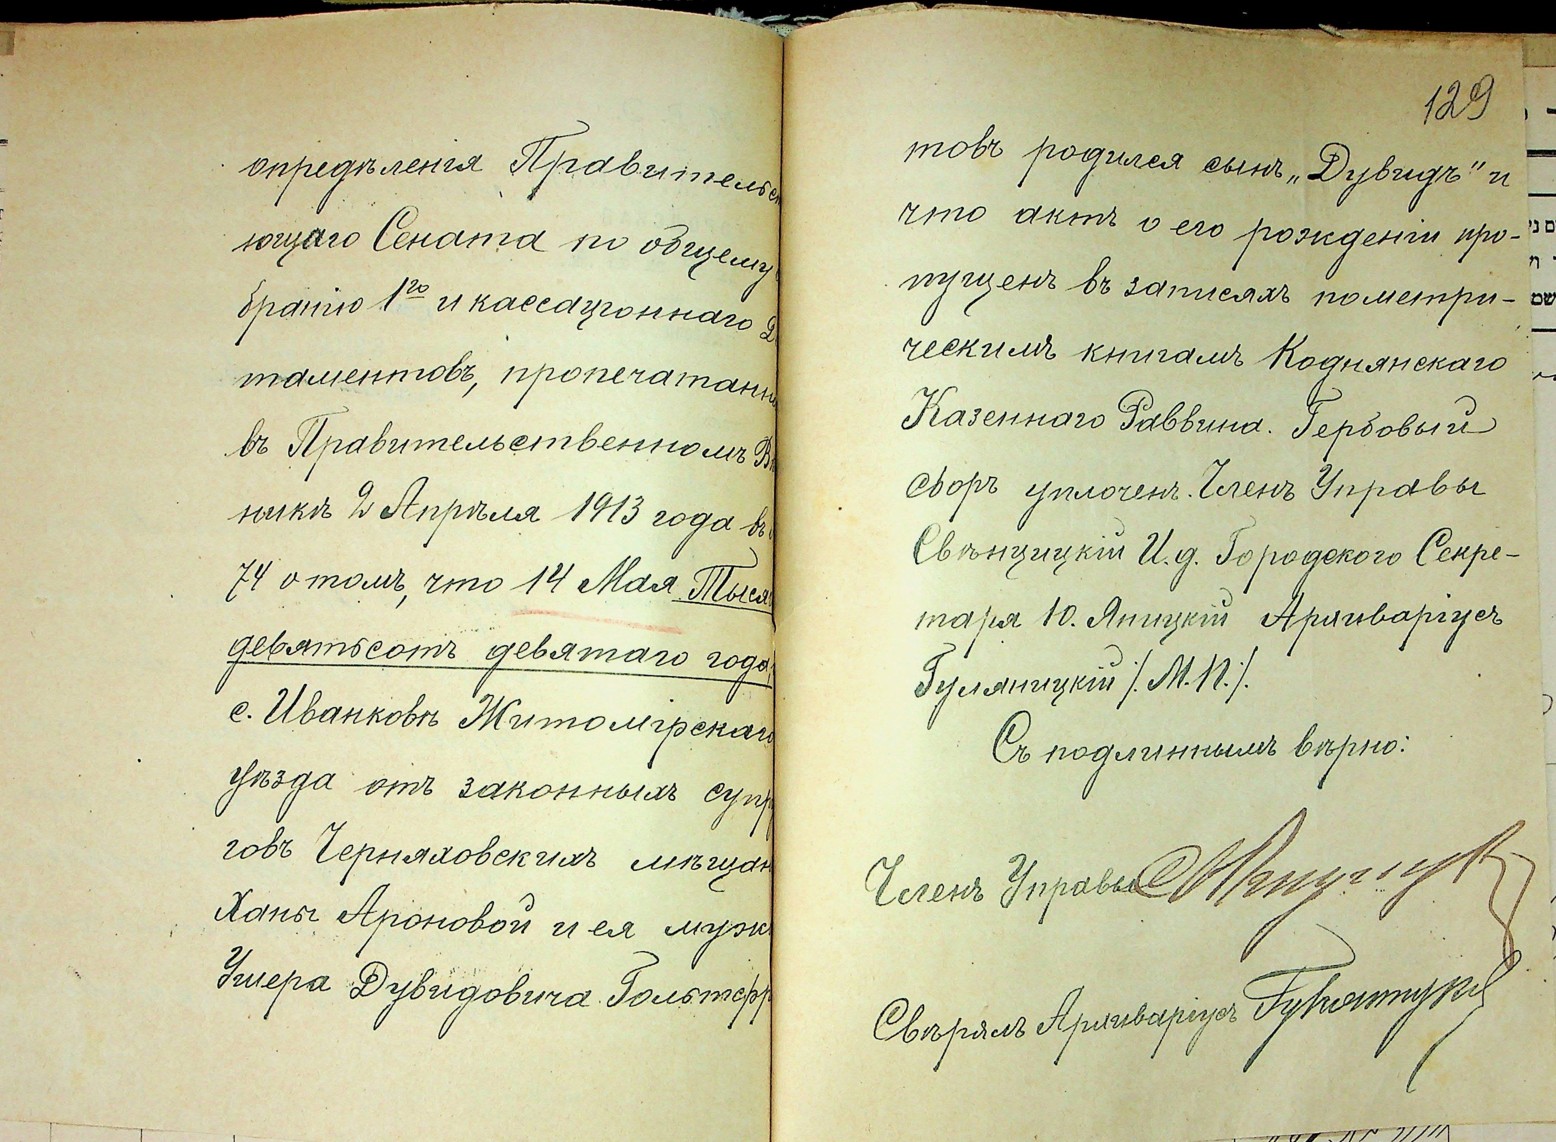 опредѣленія Правительс
ющаго Сената по общему
бранію 1го и кассаціоннаго Д
таментовъ, пропечатанн
въ Правительственномъ Вѣ
никѣ 2 Апрѣля 1913 года въ
74 о томъ, что 14 Мая Тыся
девятьсотъ девятаго года
с. Ивановкѣ Житомірскаго
уѣзда отъ законныхъ супр
говъ Черняховскихъ мѣщан
Ханы Ароновой и ея муж
Ушера Дувидовича Гольтфр
129
товъ родился сынъ „Дувидъ" и
что актъ о его рожденіи про-
пущенъ въ записяхъ по метри-
ческимъ книгамъ Коднянскаго
Казеннаго Раввина. Гербовый
сборъ уплоченъ. Членъ Управы
Свѣнцицкій И.д. Городского Секре-
таря Ю. Яницкій Архиваріусъ
Гуляницкій /. М.П. /.
Съ подлиннымъ вѣрно:
Членъ Управы
Свѣрялъ Архиваріусъ